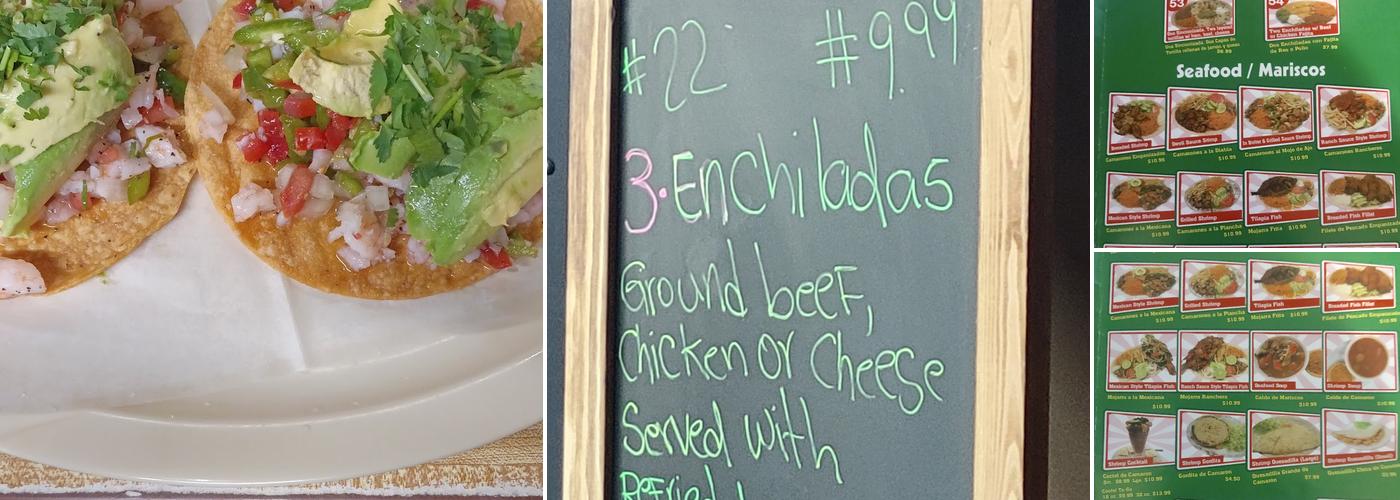 #22 #9.99
3. Enchiladas
Ground beef,
Chicken or Cheese
Served with
Refried
53 54
Two Enchiladas w/ Beef
or Chicken Fajita
Dos Enchiladas con Fajita
de Res o Pollo $7.99
Seafood / Mariscos
Breaded Shrimp Devil Sauce Srimp In Butter & Grilled Sauce Shrimp Ranch Sauce Style Shrimp
Camarones Empanizados Camarones a la Diabla Camarones al Mojo de Ajo Camarones Rancheros
$10.99 $10.99 $10.99 $10.99
Mexican Style Shrimp Grilled Shrimp Tilapia Fish Breaded Fish Fillet
Camarones a la Mexicana Camarones a la Plancha Mojarra Frita $10.99 Filete de Pescado Empanizado
$10.99 $10.99 $10.99
Mexican Style Shrimp Grilled Shrimp Tilapia Fish Breaded Fish Fillet
Camarones a la Mexicana Camarones a la Plancha Mojarra Frita $10.99 Filete de Pescado Empanizado
$10.99 $10.99 $10.99
Mexican Style Tilapia Fish Ranch Sauce Style Tilapia Fish Seafood Soup Shrimp Soup
Mojarra a la Mexicana Mojarra Ranchera Caldo de Mariscos Caldo de Camaron
$10.99 $10.99 $10.99 $10.99
Shrimp Cocktail Shrimp Gordita Shrimp Quesadilla (Large) Shrimp Quesadilla (Small)
Coctel de Camaron Gordita de Camaron Quesadilla Grande de
Camaron
$10.99 $4.50 $7.99